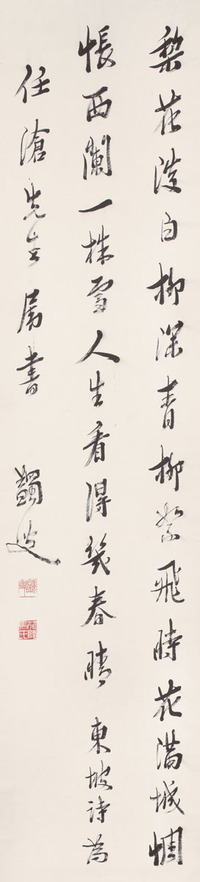 梨花淡白柳深青柳絮飛時花滿城惆
悵西闌一株雪人生看得幾春晴 東坡詩為
任滄先生屬書 蠲叟